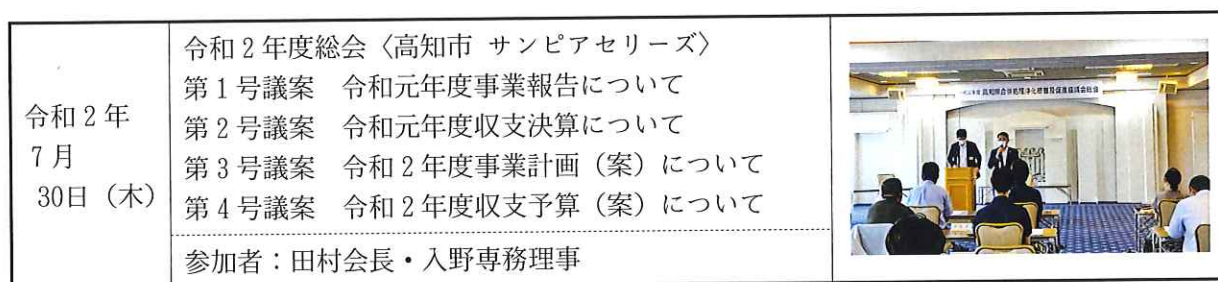 令和2年
7月
30日（木）
令和2年度総会〈高知市 サンピアセリーズ〉
第1号議案 令和元年度事業報告について
第2号議案 令和元年度収支決算について
第3号議案 令和2年度事業計画（案）について
第4号議案 令和2年度収支予算（案）について
参加者：田村会長・入野専務理事
高知県合併処理浄化槽普及促進協議会総会